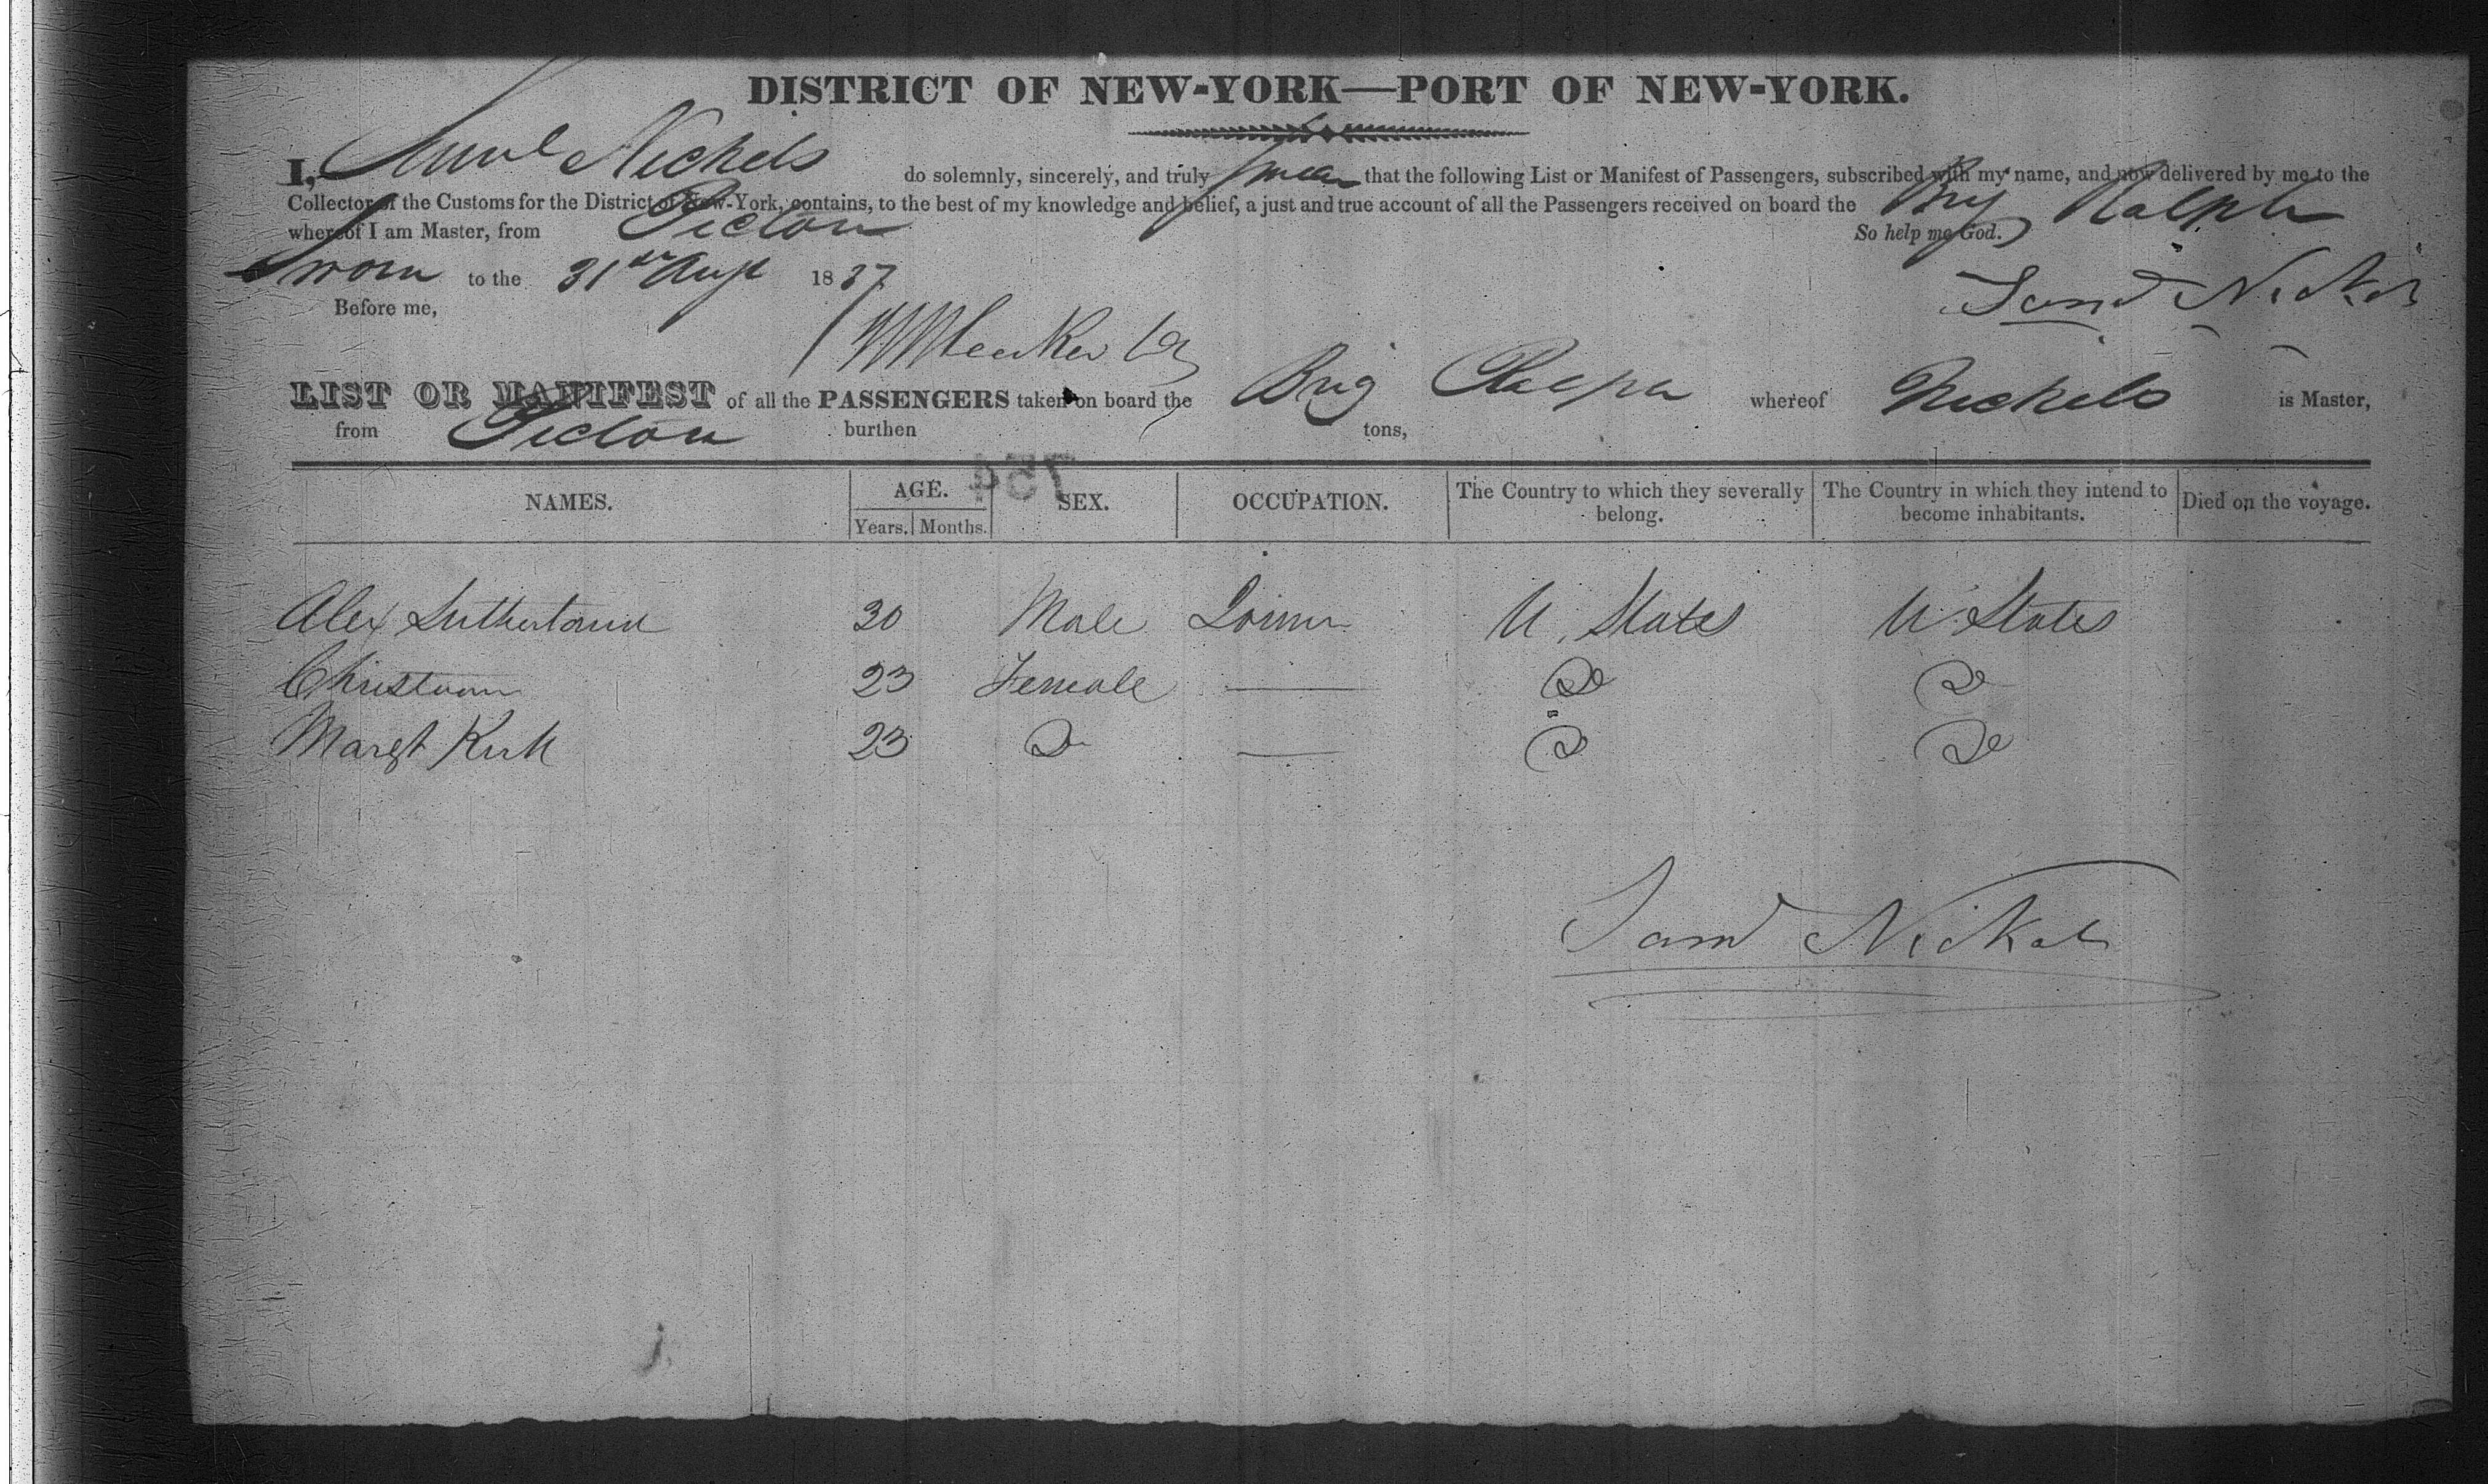 DISTRICT OF NEW-YORK—PORT OF NEW-YORK.
I, Saml Nickels do solemnly, sincerely, and truly swear that the following List or Manifest of Passengers, subscribed with my name, and now delivered by me to the
Collector of the Customs for the District of New-York, contains, to the best of my knowledge and belief, a just and true account of all the Passengers received on board the Brig Ralph
whereof I am Master, from Pictou So help me God.
Sworn to the 31st Augt 1837 Saml Nickels
Before me,
LIST OR MANIFEST of all the PASSENGERS taken on board the Brig Ralph whereof Nickels is Master,
from Pictou burthen tons,
754
NAMES. AGE. SEX. OCCUPATION. The Country to which they severally belong. The Country in which they intend to become inhabitants. Died on the voyage.
Years. Months.
Alex Sutherland 30 Male Joiner U. States U. States
23 Female — Do Do
Margt Kirk 23 Do — Do Do
Saml Nickels